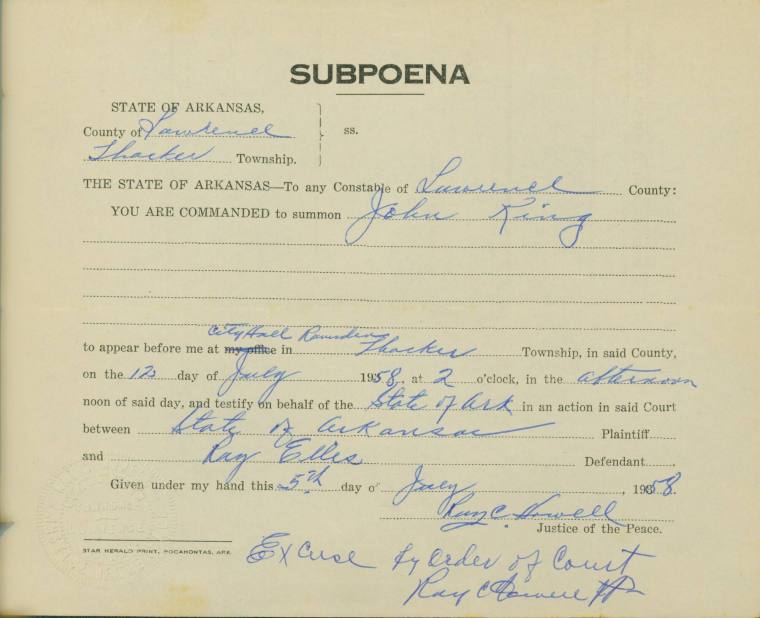 SUBPOENA
STATE OF ARKANSAS,
County of Lawrence ss.
Thacker Township.
THE STATE OF ARKANSAS—To any Constable of Lawrence County:
YOU ARE COMMANDED to summon John King
City Hall Ravenden
to appear before me at my office in Thacker Township, in said County,
on the 12 day of July 1958, at 2 o'clock, in the afternoon
noon of said day, and testify on behalf of the State of Ark in an action in said Court
between State of Arkansas Plaintiff
and Ray Elles Defendant
Given under my hand this 5th day of July, 1958.
Ray C. Howell
Justice of the Peace.
STAR HERALD PRINT, POCAHONTAS, ARK.
Excuse by order of Court
Ray C Howell